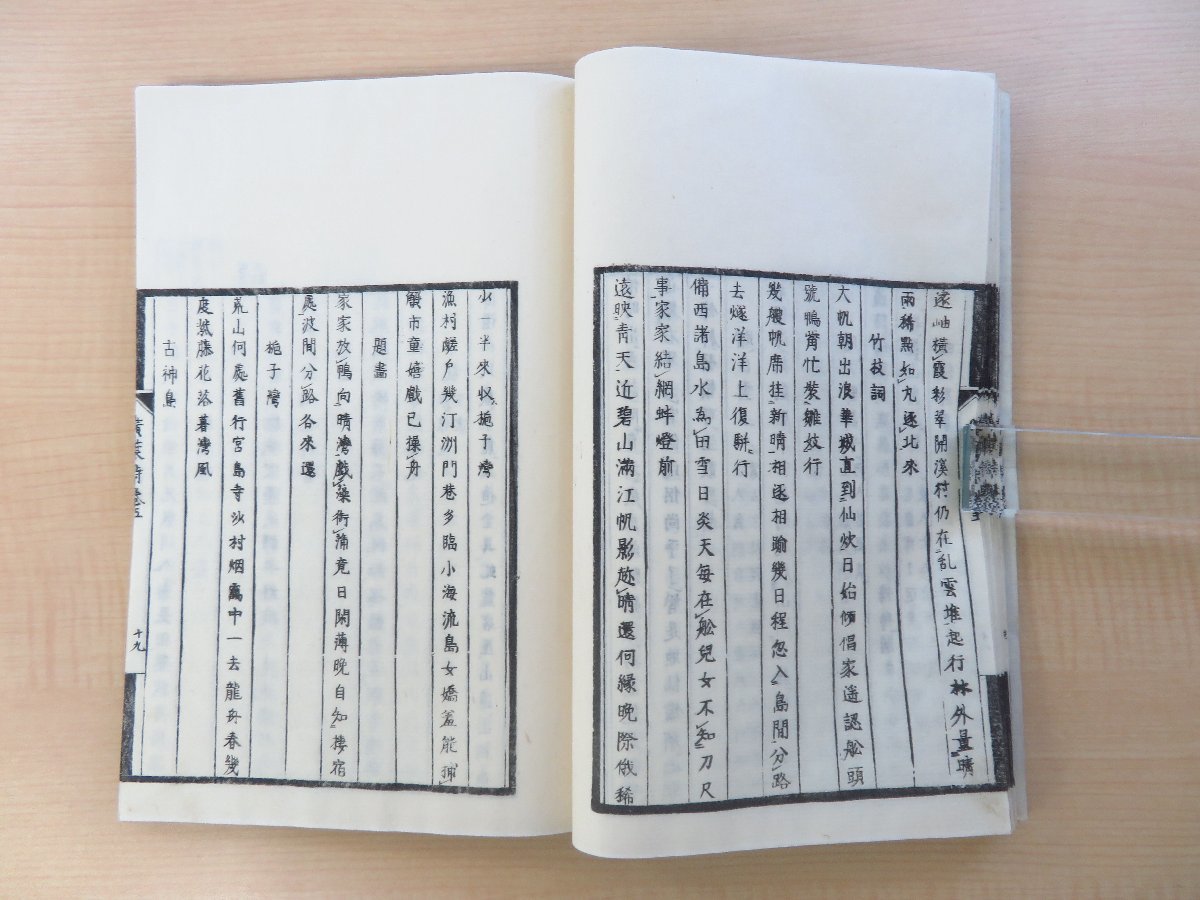 遠岫橫霞彩翠開溪村仍在乱雲堆起行林外量晴
雨稀點如丸逐北來
竹枝詞
大帆朝出浪華城直到仙炊日始傾倡家遥認舩頭
號鴨觜忙裝雛妓行
幾艘帆席挂新晴相逐相踰幾日程忽入島間分路
去燧洋洋上復駢行
備西諸島水為田雪日炎天每在舩兒女不知刀尺
事家家結網蚌燈前
遠映青天近碧山滿江帆影趂晴還何緣晚際俄稀
少一半來收梔子灣
漁村戶幾汀洲門巷多臨小海流島女嬌羞能捕
顧市童嬉戲已操舟
題畵
家家放鴨向晴灣戲藻衔蒲竟日閑薄晚自知棲宿
處波間分路各來還
梔子灣
荒山何處舊行宮島寺沙村烟靄中一去龍舟春幾
度藤花落暮灣風
古神島
十九